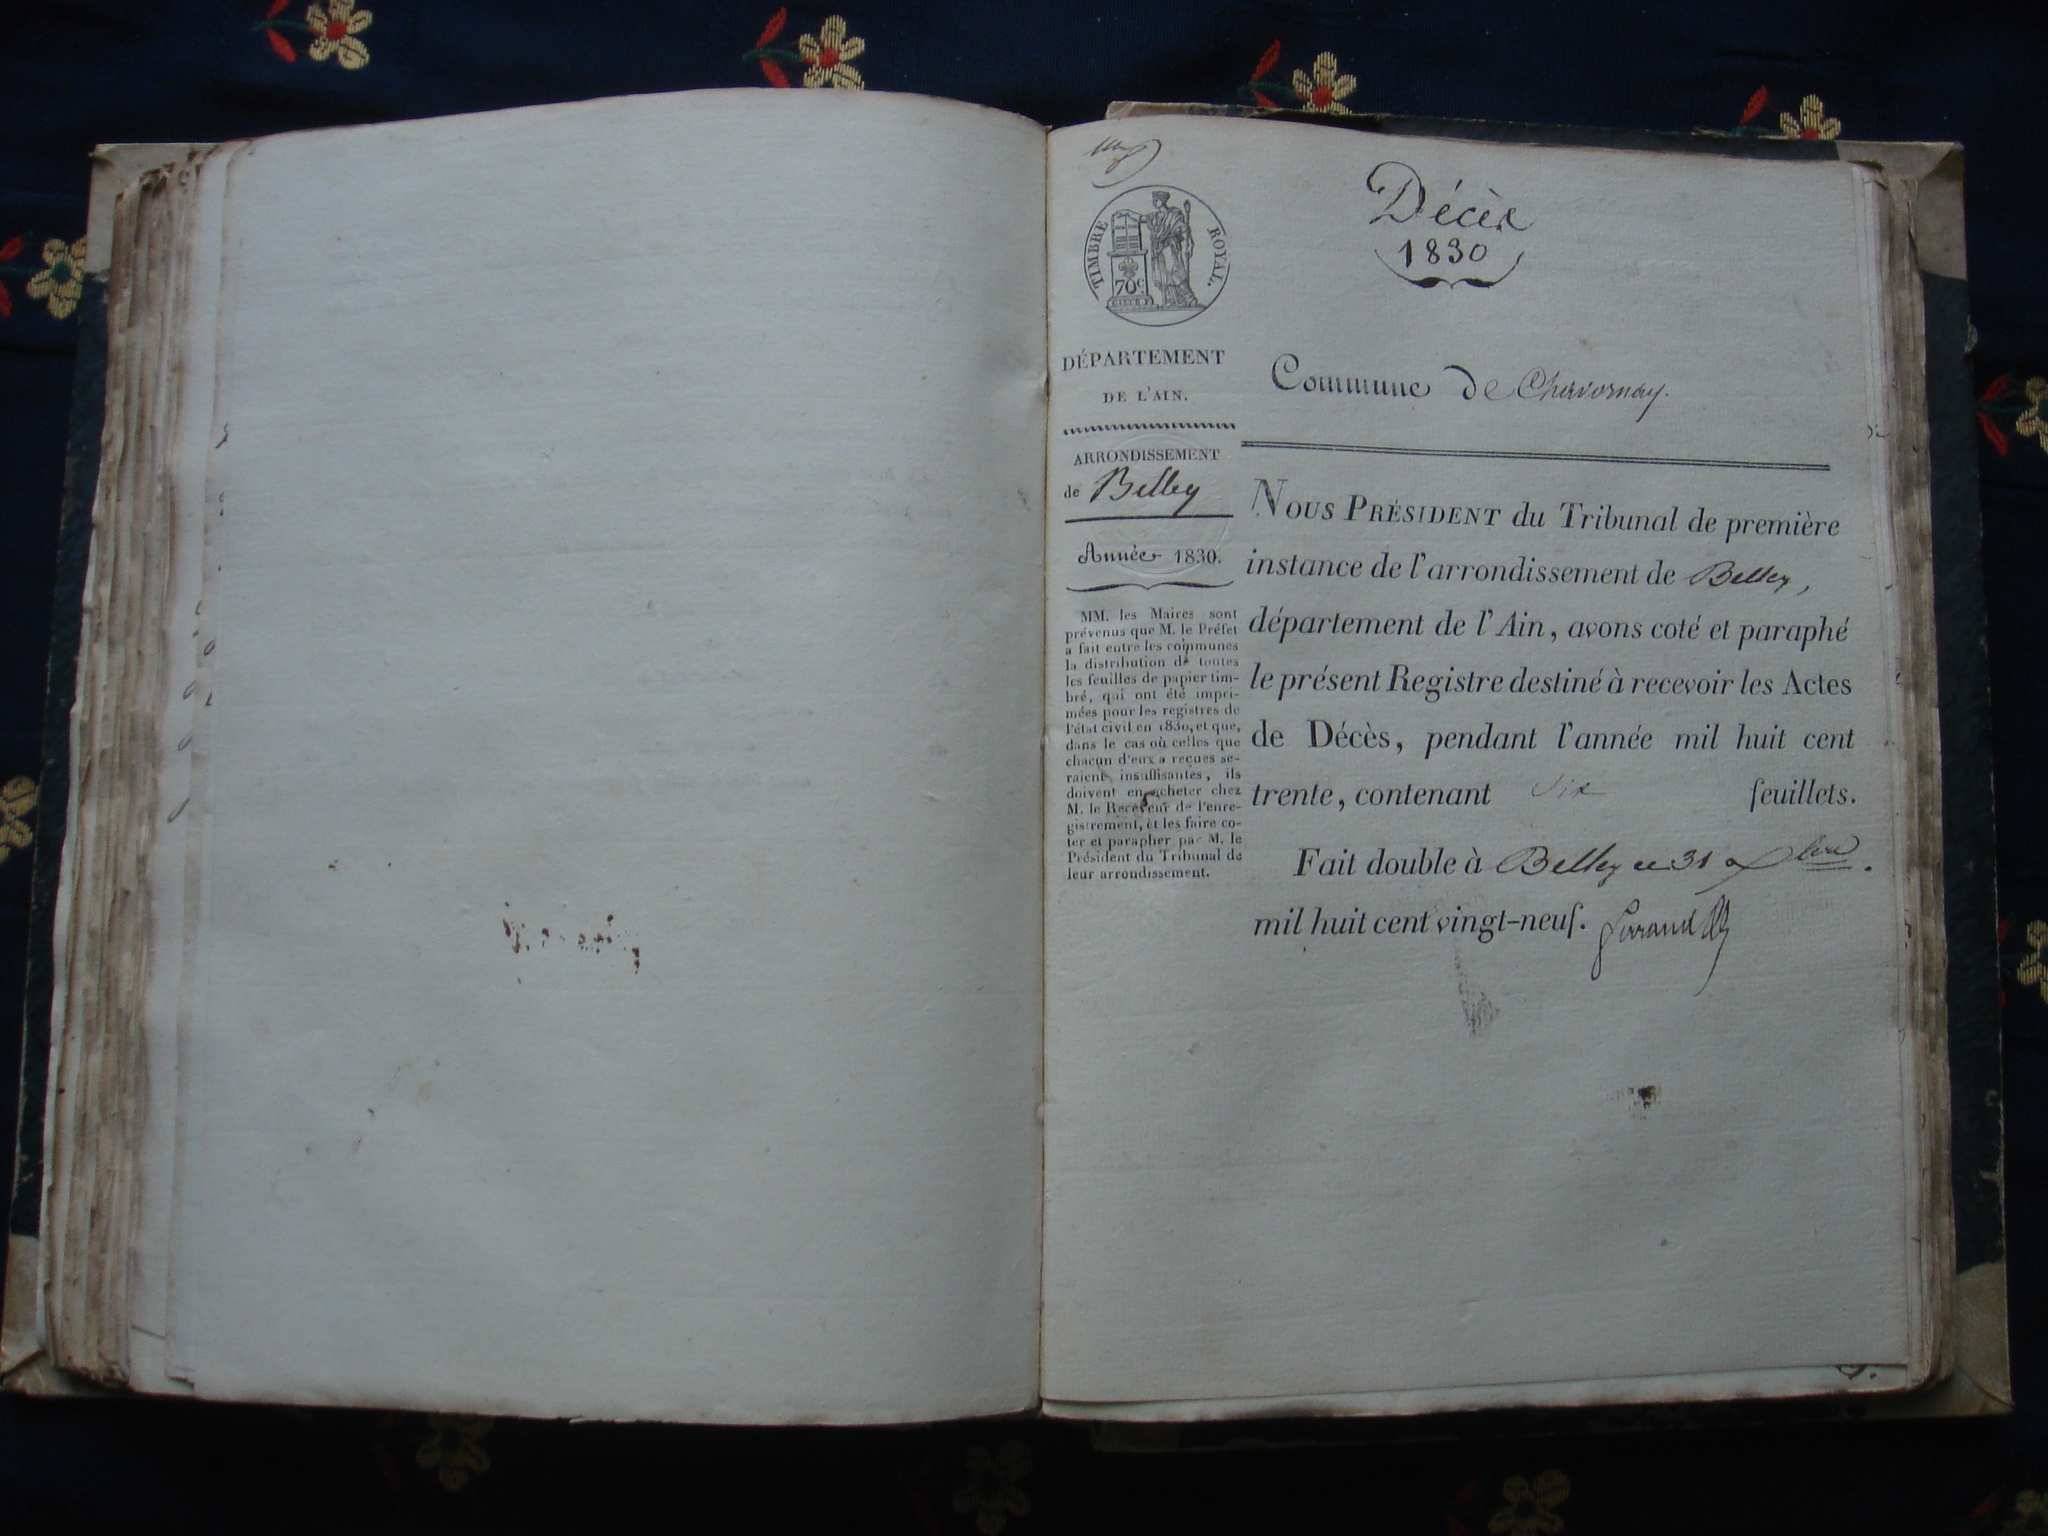 TIMBRE ROYAL.
70c
Décès
1830
DÉPARTEMENT
DE L'AIN.
Commune de Chavornay.
ARRONDISSEMENT
de Belley
Année 1830.
MM. les Maires sont
prévenus que M. le Préfet
a fait entre les communes
la distribution de toutes
les feuilles de papier tim-
bré, qui ont été impri-
mées pour les registres de
l'état civil en 1830, et que,
dans le cas où celles que
chacun d'eux a reçues se-
raient insuffisantes, ils
doivent en acheter chez
M. le Receveur de l'enre-
gistrement, et les faire co-
ter et parapher par M. le
Président du Tribunal de
leur arrondissement.
NOUS PRÉSIDENT du Tribunal de première
instance de l'arrondissement de Belley,
département de l'Ain, avons coté et paraphé
le présent Registre destiné à recevoir les Actes
de Décès, pendant l'année mil huit cent
trente, contenant six feuillets.
Fait double à Belley ce 31 Xbre.
mil huit cent vingt-neuf.